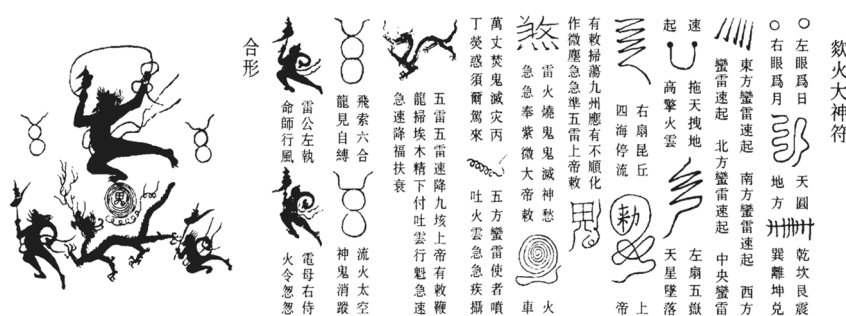 欻火大神符
左眼爲日 天圓 乾坎艮震
右眼爲月 地方 巽離坤兌
東方蠻雷速起 南方蠻雷速起 西方
蠻雷速起 北方蠻雷速起 中央蠻雷
速 拖天拽地 左扇五嶽
起 高擎火雲 天星墜落
右扇昆丘 勅 上
四海停流 帝
有敕掃蕩九州應有不順化
作微塵急急準五雷上帝敕
煞
雷火燒鬼鬼滅神愁 火
急急奉紫微大帝敕 車
萬丈焚鬼滅灾丙 五方蠻雷使者噴
丁熒惑須爾駕來 吐火雲急急疾攝
五雷五雷速降九垓上帝有敕鞭
龍掃埃木精下付吐雲行魁急速
急速降福扶衰
飛索六合 流火太空
龍見自縛 神鬼消蹤
雷公左執 電母右侍
命師行風 火令怱怱
合形
鬼